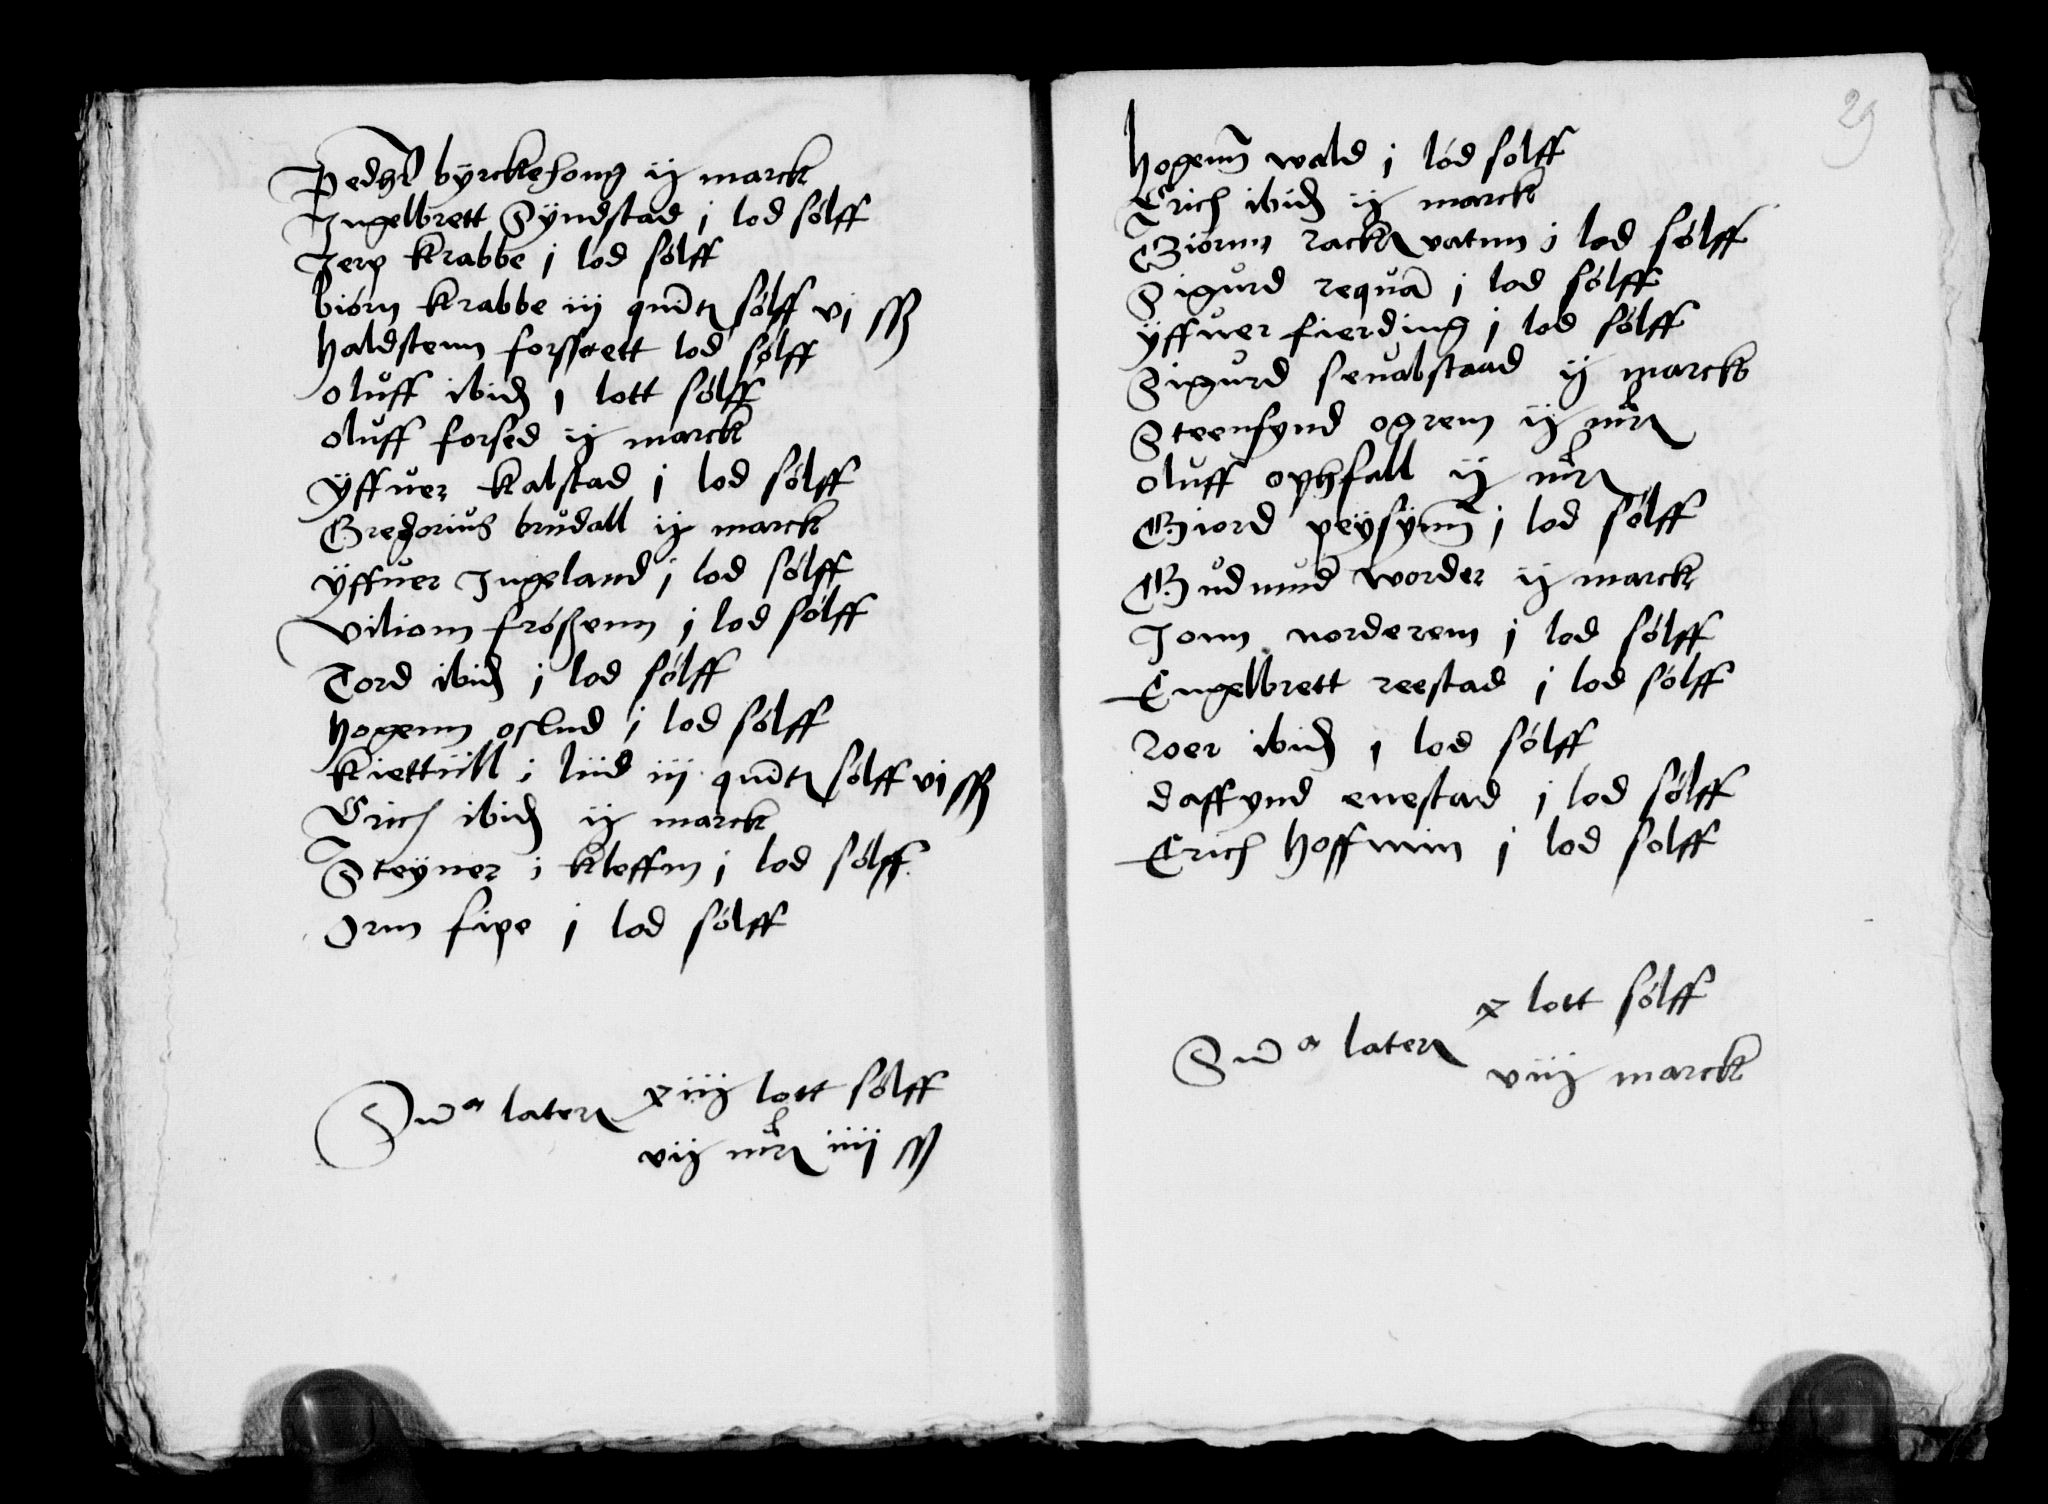 Peder byrckehong ij marck
Ingelbrett Syndstad j lod sølff
Jerp krabbe j lod sølff
biørn krabbe iij quint sølff vj ß
haldstenn forssett lod sølff
oluff ibid 1 lott sølff
oluff forsed ij marck
ÿffuer kalstad j lod sølff
Gregorius brudall ij marck
ÿffuer Ingeland j lod sølff
viliom frößenn j lod sølff
Tord ibid j lod sølff
hogenn oslud j lod sølff
kiettiill i liid iij quint sølff vj ß
Erich ibid ij marck
Steyner i kleffm j lod sølff
Orm sipe j lod sølff
Suma lateris xiij lott sølff
vij mr iiij ß
29
hogenn wald j lod sølff
Erich ibid ij marck
Biørnn racke vatnn j lod sølff
Sigurd requam j lod sølff
ÿffuer fierding j lod sølff
Sigurd seualstaad ij marck
Steenfynd ogrem ij mr
oluff ophfall ij mr
Giord peÿsÿnn j lod sølff
Gudmund worder ij marck
Jonn norderem j lod sølff
Engelbrett reestad j lod sølff
Roer ibid 1 lod sølff
daffynd enestad j lod sølff
Erich hoffwin j lod sølff
Suma lateris x lott sølff
viij marck